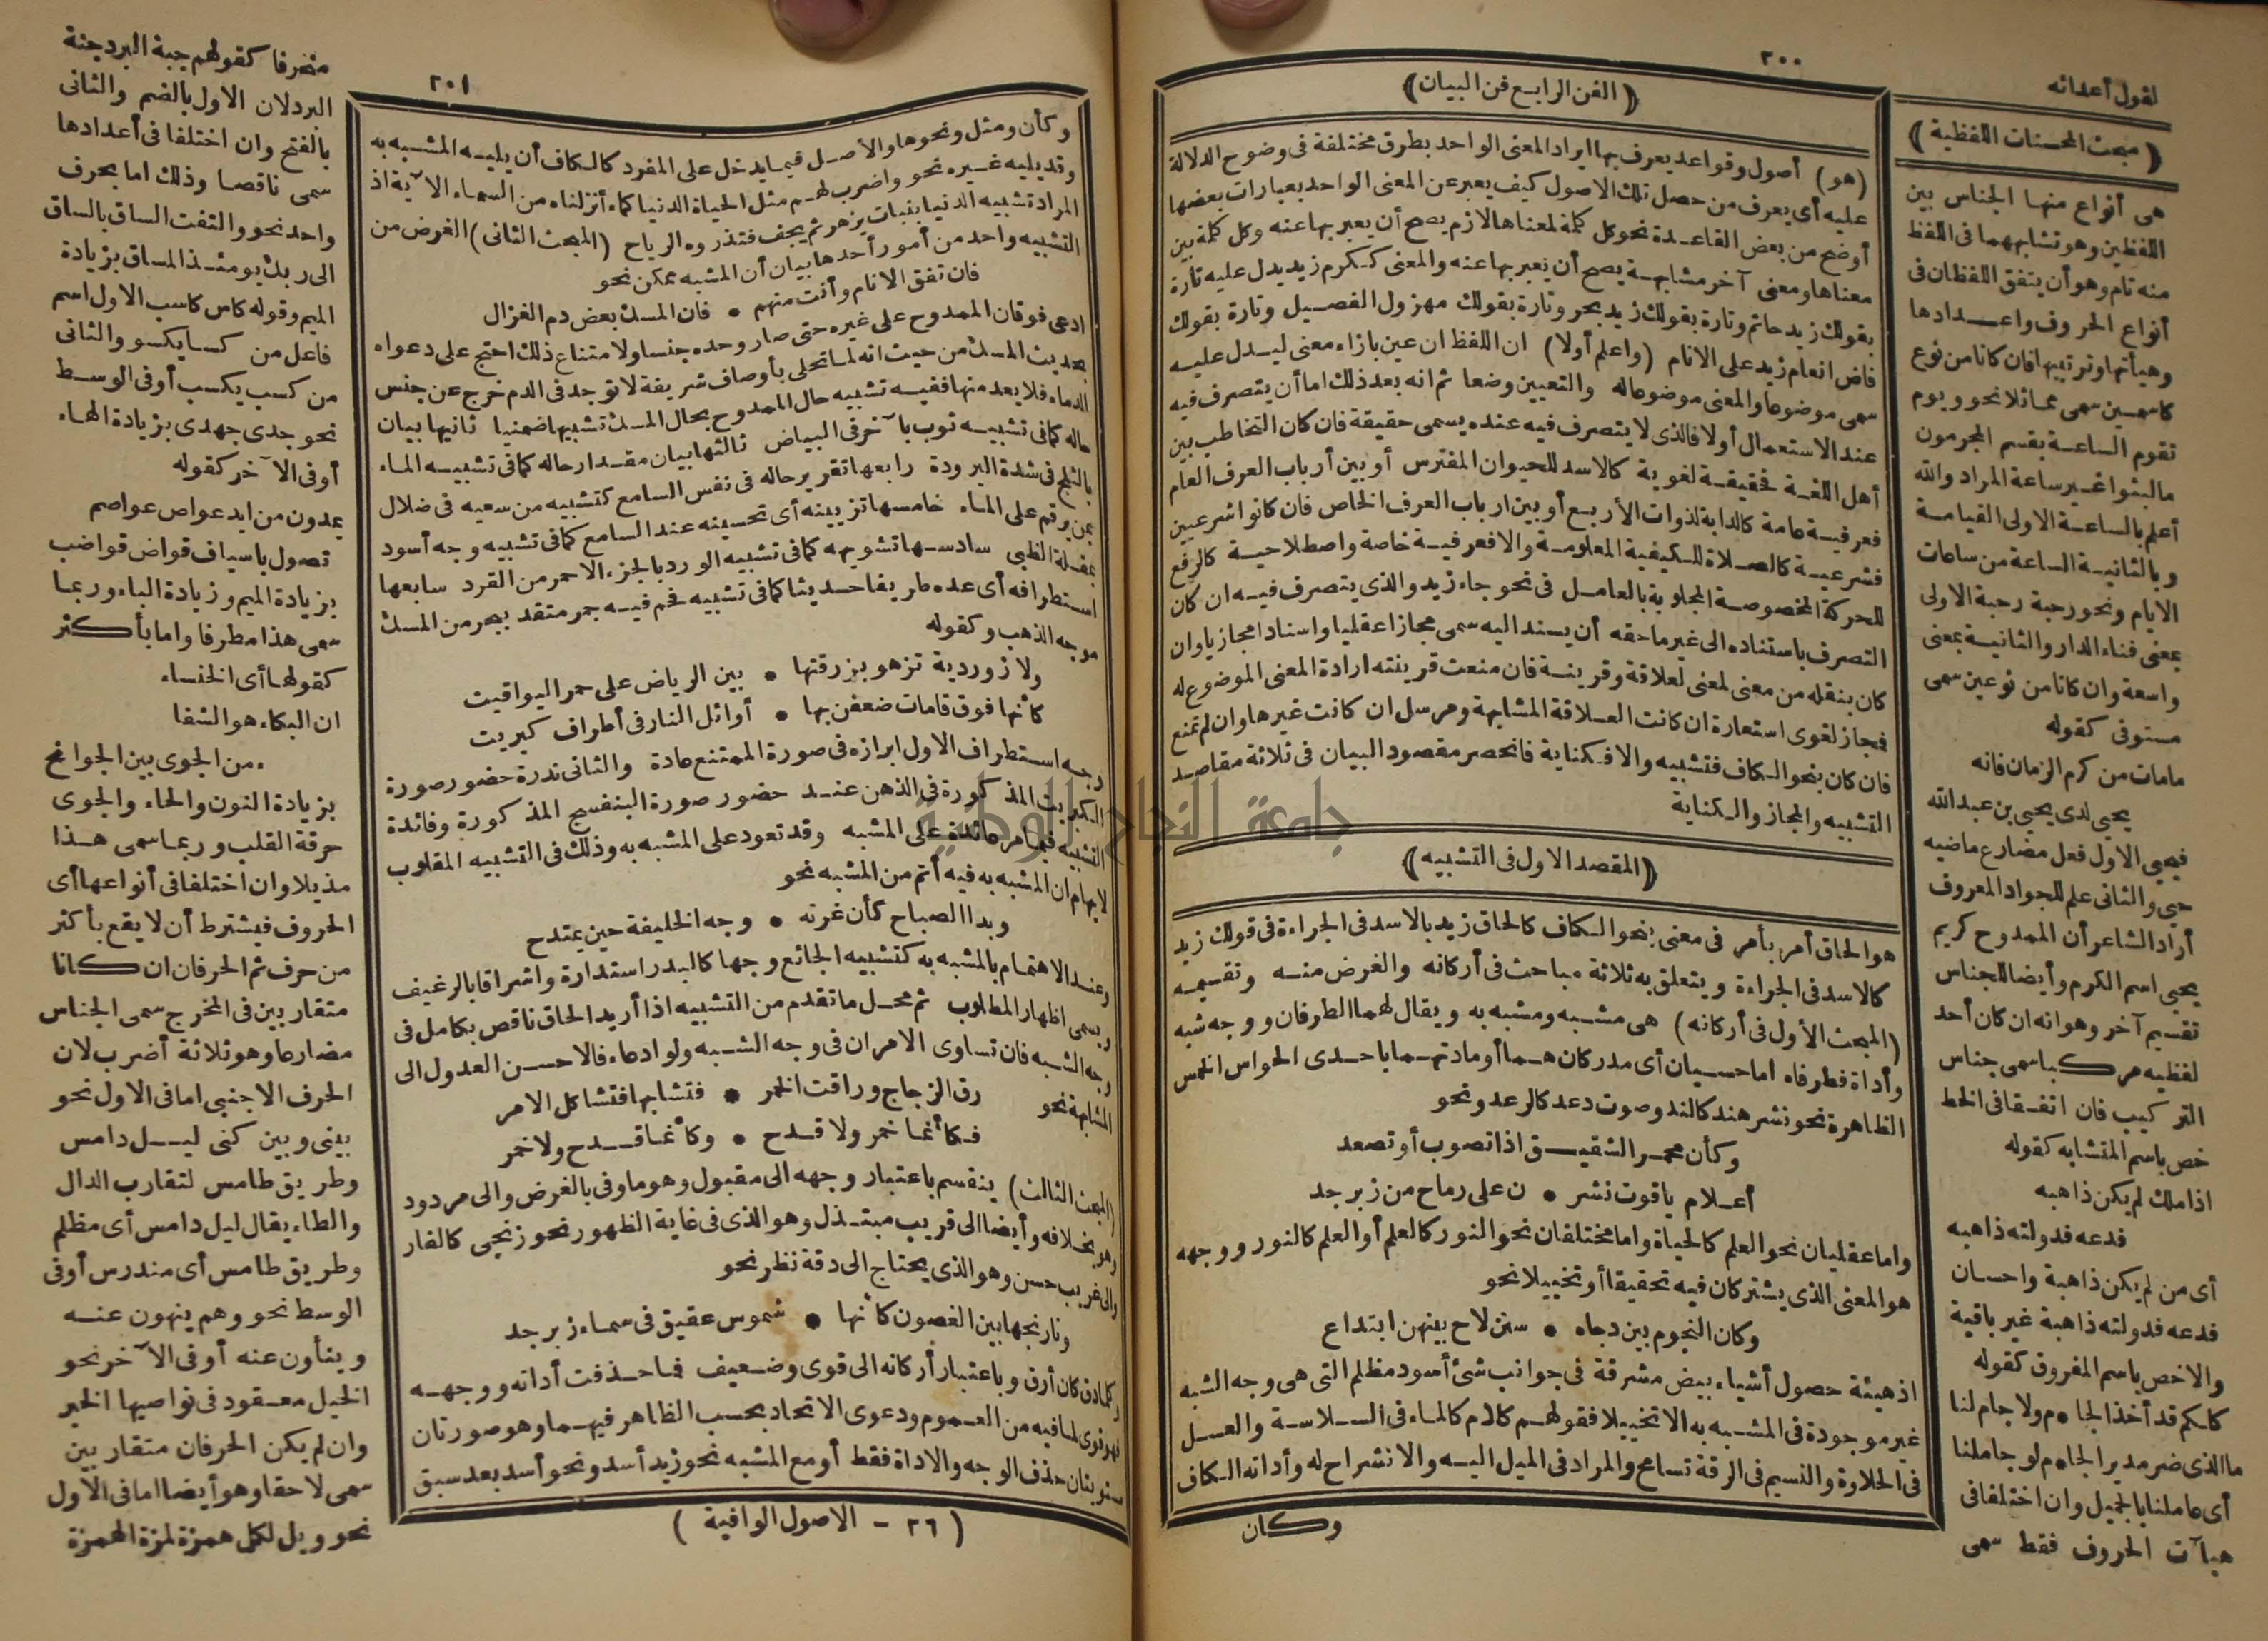 ٢٠٠
﴿ الفن الرابع فن البيان ﴾
(هو) أصول وقواعد يعرف بها ايراد المعنى الواحد بطرق مختلفة فى وضوح الدلالة
عليه أى يعرف من حصل تلك الاصول كيف يعبر عن المعنى الواحد بعبارات بعضها
أوضح من بعض القاعدة نحو كل كلمة لمعناها لازم يصح أن يعبر بها عنه وكل كلمة بين
معناها ومعنى آخر مشابهة يصح أن يعبر بها عنه والمعنى ككرم زيد يدل عليه تارة
بقولك زيد حاتم وتارة بقولك زيد بحر وتارة بقولك مهزول الفصيل وتارة بقولك
فاض انعام زيد على الانام (واعلم أولا) ان اللفظ ان عين بازاء معنى ليدل عليه
سمى موضوعا والمعنى موضوعاله والتعيين وضعا ثم انه بعد ذلك اما أن يتصرف فيه
عند الاستعمال أو لا فالذى لا يتصرف فيه عنده يسمى حقيقة فان كان التخاطب بين
أهل اللغة فحقيقة لغوية كالاسد للحيوان المفترس أو بين أرباب العرف العام
فعرفية عامة كالدابة لذوات الأربع أو بين ارباب العرف الخاص فان كانوا شرعيين
فشرعية كالصلاة للكيفية المعلومة والا فعرفية خاصة واصطلاحية كالرفع
للحركة المخصوصة المجلوبة بالعامل فى نحو جاء زيد والذى يتصرف فيه ان كان
التصرف باسناده الى غير ماحقه أن يسند اليه سمى مجازا عقليا واسنادا مجازيا وان
كان بنقله من معنى لمعنى لعلاقة وقرينة فان منعت قرينته ارادة المعنى الموضوع له
فمجاز لغوى استعارة ان كانت العلاقة المشابهة ومرسل ان كانت غيرها وان لم تمنع
فان كان بنحو الكاف فتشبيه والا فكناية فانحصر مقصود البيان فى ثلاثة مقاصد
التشبيه والمجاز والكناية
﴿ المقصد الاول فى التشبيه ﴾
هو الحاق أمر بأمر فى معنى بنحو الكاف كالحاق زيد بالاسد فى الجراءة فى قولك زيد
كالاسد فى الجراءة ويتعلق به ثلاثة مباحث فى أركانه والغرض منه وتقسيمه
(المبحث الأول فى أركانه) هى مشبه ومشبه به ويقال لهما الطرفان ووجه شبه
وأداة فطرفاه اما حسيان أى مدركان هما أو مادتهما باحدى الحواس الخمس
الظاهرة نحو نشر هند كالند وصوت دعد كالرعد ونحو
وكأن محمر الشقيـ ـق اذا تصوب أو تصعد
أعلام ياقوت نشر • ن على رماح من زبرجد
واما عقليان نحو العلم كالحياة واما مختلفان نحو النور كالعلم أو العلم كالنور ووجهه
هو المعنى الذى يشتركان فيه تحقيقا أو تخييلا نحو
وكان النجوم بين دجاه • سنن لاح بينهن ابتداع
اذ هيئة حصول أشياء بيض مشرقة فى جوانب شئ أسود مظلم التى هى وجه الشبه
غير موجودة فى المشبه به الا تخييلا فقولهم كلام كالماء فى السلاسة والعسل
فى الحلاوة والنسيم فى الرقة تسامح والمراد فى الميل اليه والانشراح له وأداته الكاف
وكان
لقول أعدائه
﴿ مبحث المحسنات اللفظية ﴾
هى أنواع منها الجناس بين
اللفظين وهو تشابههما فى اللفظ
منه تام وهو أن يتفق اللفظان فى
أنواع الحروف واعدادها
وهيأتها وترتيبها فان كانا من نوع
كاسمين سمى مماثلا نحو ويوم
تقوم الساعة يقسم المجرمون
مالبثوا غير ساعة المراد والله
أعلم بالساعة الاولى القيامة
وبالثانية الساعة من ساعات
الايام ونحو رحبة رحبة الاولى
بمعنى فناء الدار والثانية بمعنى
واسعة وان كانا من نوعين سمى
مستوفى كقوله
مامات من كرم الزمان فانه
يحيى لدى يحيى بن عبد الله
فيحيى الاول فعل مضارع ماضيه
حيى والثانى علم للجواد المعروف
أراد الشاعر أن الممدوح كريم
يحيى اسم الكرم وأيضا للجناس
تقسيم آخر وهو انه ان كان أحد
لفظيه مركبا سمى جناس
التركيب فان اتفقا فى الخط
خص باسم المتشابه كقوله
اذا ملك لم يكن ذاهبه
فدعه فدولته ذاهبه
أى من لم يكن ذاهبة واحسان
فدعه فدولته ذاهبة غير باقية
والا خص باسم المفروق كقوله
كلكم قد أخذ الجا • م ولا جام لنا
ما الذى ضر مدير الجا • م لو جاملنا
أى عاملنا بالجميل وان اختلفا فى
هيآت الحروف فقط سمى
٢٠١
وكأن ومثل ونحوها والاصل فيما يدخل على المفرد كالكاف أن يليه المشبه به
وقد يليه غيره نحو واضرب لهم مثل الحياة الدنيا كماء أنزلناه من السماء الآية اذ
المراد تشبيه الدنيا بنبات يزهر ثم يجف فتذروه الرياح (المبحث الثانى) الغرض من
التشبيه واحد من أمور أحدها بيان أن المشبه ممكن نحو
فان تفق الانام وأنت منهم • فان المسك بعض دم الغزال
ادعى فوقان الممدوح على غيره حتى صار وحده جنسا ولامتناع ذلك احتج على دعواه
بحديث المسك من حيث انه لما تحلى بأوصاف شريفة لا توجد فى الدم خرج عن جنس
الدماء فلا يعد منها ففيه تشبيه حال الممدوح بحال المسك تشبيها ضمنيا ثانيها بيان
حاله كما فى تشبيه ثوب بآخر فى البياض ثالثها بيان مقدار حاله كما فى تشبيه الماء
بالثلج فى شدة البرودة رابعها تقرير حاله فى نفس السامع كتشبيه من سعيه فى ضلال
بمن يرقم على الماء خامسها تزيينه أى تحسينه عند السامع كما فى تشبيه وجه أسود
بمقلة الظبى سادسها تشويهه كما فى تشبيه الورد بالجزء الاحمر من القرد سابعها
استطرافه أى عده طريفا حديثا كما فى تشبيه فحم فيه جمر متقد ببحر من المسك
موجه الذهب وكقوله
ولازوردية تزهو بزرقتها • بين الرياض على حمر اليواقيت
كأنها فوق قامات ضعفن بها • أوائل النار فى أطراف كبريت
وجه استطراف الاول ابرازه فى صورة الممتنع عادة والثانى ندرة حضور صورة
الكبريت المذكورة فى الذهن عند حضور صورة البنفسج المذكورة وفائدة
التشبيه فيما مر عائدة على المشبه وقد تعود على المشبه به وذلك فى التشبيه المقلوب
لايهام ان المشبه به فيه أتم من المشبه نحو
وبدا الصباح كأن غرته • وجه الخليفة حين يمتدح
وعند الاهتمام بالمشبه به كتشبيه الجائع وجها كالبدر استدارة واشراقا بالرغيف
ويسمى اظهار المطلوب ثم محل ماتقدم من التشبيه اذا أريد الحاق ناقص بكامل فى
وجه الشبه فان تساوى الامران فى وجه الشبه ولو ادعاء فالاحسن العدول الى
المشابهة نحو رق الزجاج وراقت الخمر • فتشابها فتشاكل الامر
فكأنما خمر ولا قدح • وكأنما قدح ولا خمر
(المبحث الثالث) ينقسم باعتبار وجهه الى مقبول وهو ماوفى بالغرض والى مردود
وهو بخلافه وأيضا الى قريب مبتذل وهو الذى فى غاية الظهور نحو زنجى كالفار
والى غريب حسن وهو الذى يحتاج الى دقة نظر نحو
ونارنجها بين الغصون كأنها • شموس عقيق فى سماء زبرجد
وكلما دق كان أرق وباعتبار أركانه الى قوى وضعيف فما حذفت أداته ووجهه
فهو قوى لما فيه من العموم ودعوى الاتحاد بحسب الظاهر فيهما وهو صورتان
ستويتان حذف الوجه والاداة فقط أو مع المشبه نحو زيد أسد ونحو أسد بعد سبق
( ٢٦ - الاصول الوافية )
منحرفا كقولهم جبة البرد جنة
البرد لان الاول بالضم والثانى
بالفتح وان اختلفا فى أعدادها
سمى ناقصا وذلك اما بحرف
واحد نحو والتفت الساق بالساق
الى ربك يومئذ المساق بزيادة
الميم وقوله كاس كاسب الاول اسم
فاعل من كسا يكسو والثانى
من كسب يكسب أو فى الوسط
نحو جدى جهدى بزيادة الهاء
أو فى الآخر كقوله
يمدون من ايد عواص عواصم
تصول باسياف قواض قواضب
بزيادة الميم وزيادة الباء وربما
سمى هذا مطرفا واما بأكثر
كقولها أى الخنساء
ان البكاء هو الشفا
ء من الجوى بين الجوانح
بزيادة النون والحاء والجوى
حرقة القلب وربما سمى هذا
مذيلا وان اختلفا فى أنواعها أى
الحروف فيشترط أن لا يقع بأكثر
من حرف ثم الحرفان ان كانا
متقاربين فى المخرج سمى الجناس
مضارعا وهو ثلاثة أضرب لان
الحرف الاجنبى اما فى الاول نحو
بينى وبين كنى ليل دامس
وطريق طامس لتقارب الدال
والطاء يقال ليل دامس أى مظلم
وطريق طامس أى مندرس أو فى
الوسط نحو وهم ينهون عنه
وينأون عنه أو فى الآخر نحو
الخيل معقود فى نواصيها الخير
وان لم يكن الحرفان متقاربين
سمى لاحقا وهو أيضا اما فى الاول
نحو ويل لكل همزة لمزة الهمزة
جامعة النجاح الوطنية